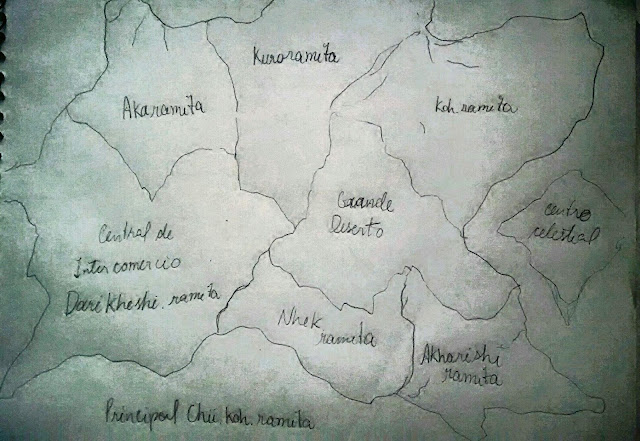 Kuroramita
Akaramita
Koh.ramita
Grande
Diserto
Centro
celestial
Central de
Inter comercio
Dari Kheshi.ramita
Nhek
ramita
Akharishi
ramita
Principal Chu.Koh.ramita